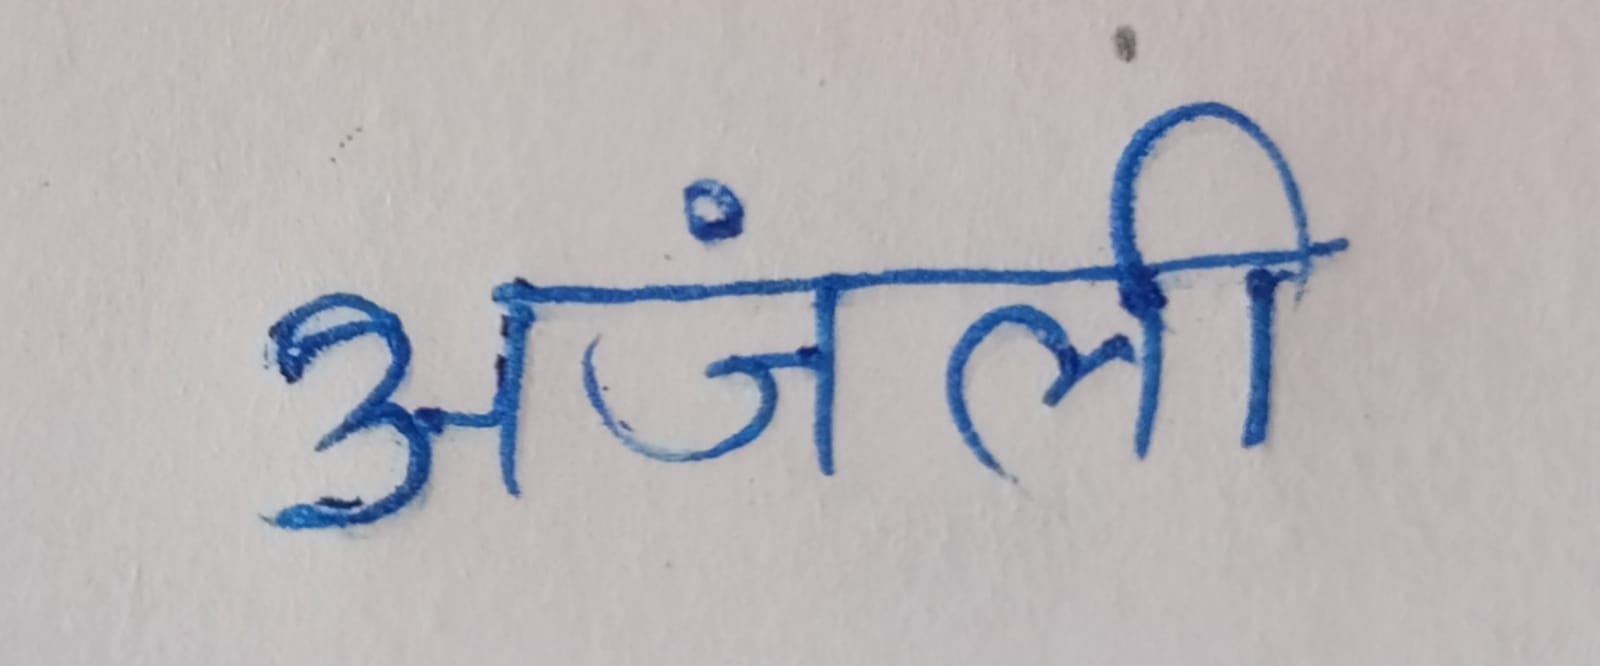 अजंली